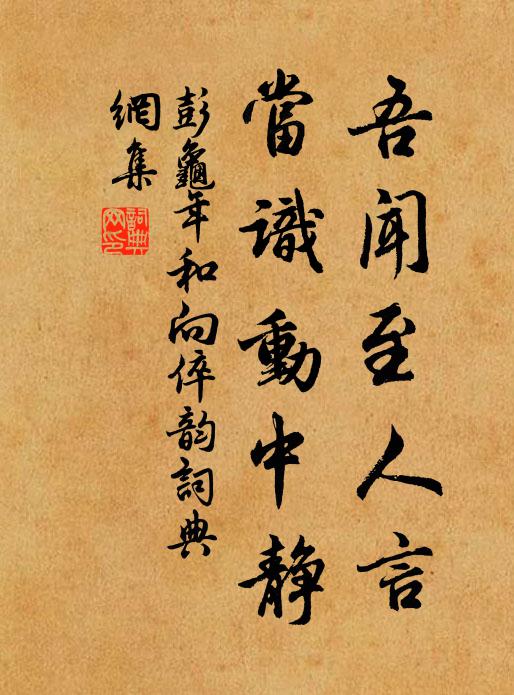 吾聞至人言
當識動中静
彭龜年和向倅韵詞典
網集
詞典
网印